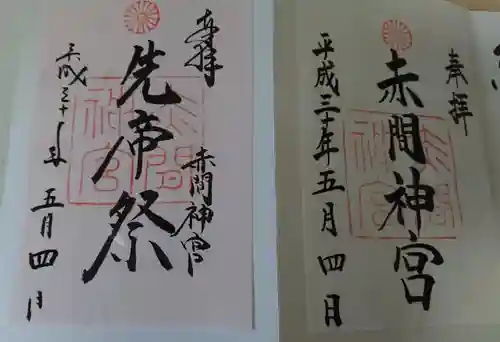 奉拝
赤間神宮
平成三十年五月四日
奉拝
赤間神宮
先帝祭
平成三十年五月四日
赤間神宮
赤間神宮